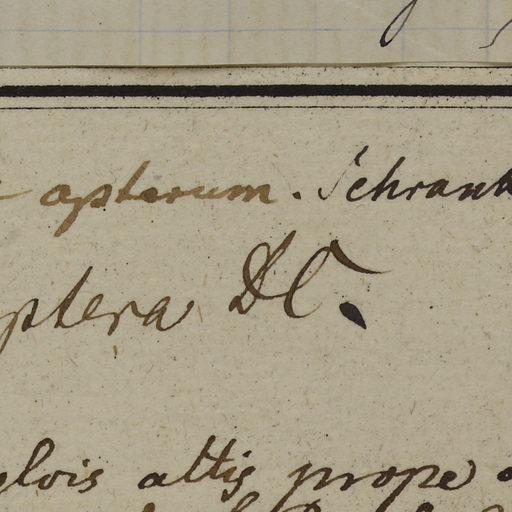 apterum. Schrank
ptera DC.
altis prope